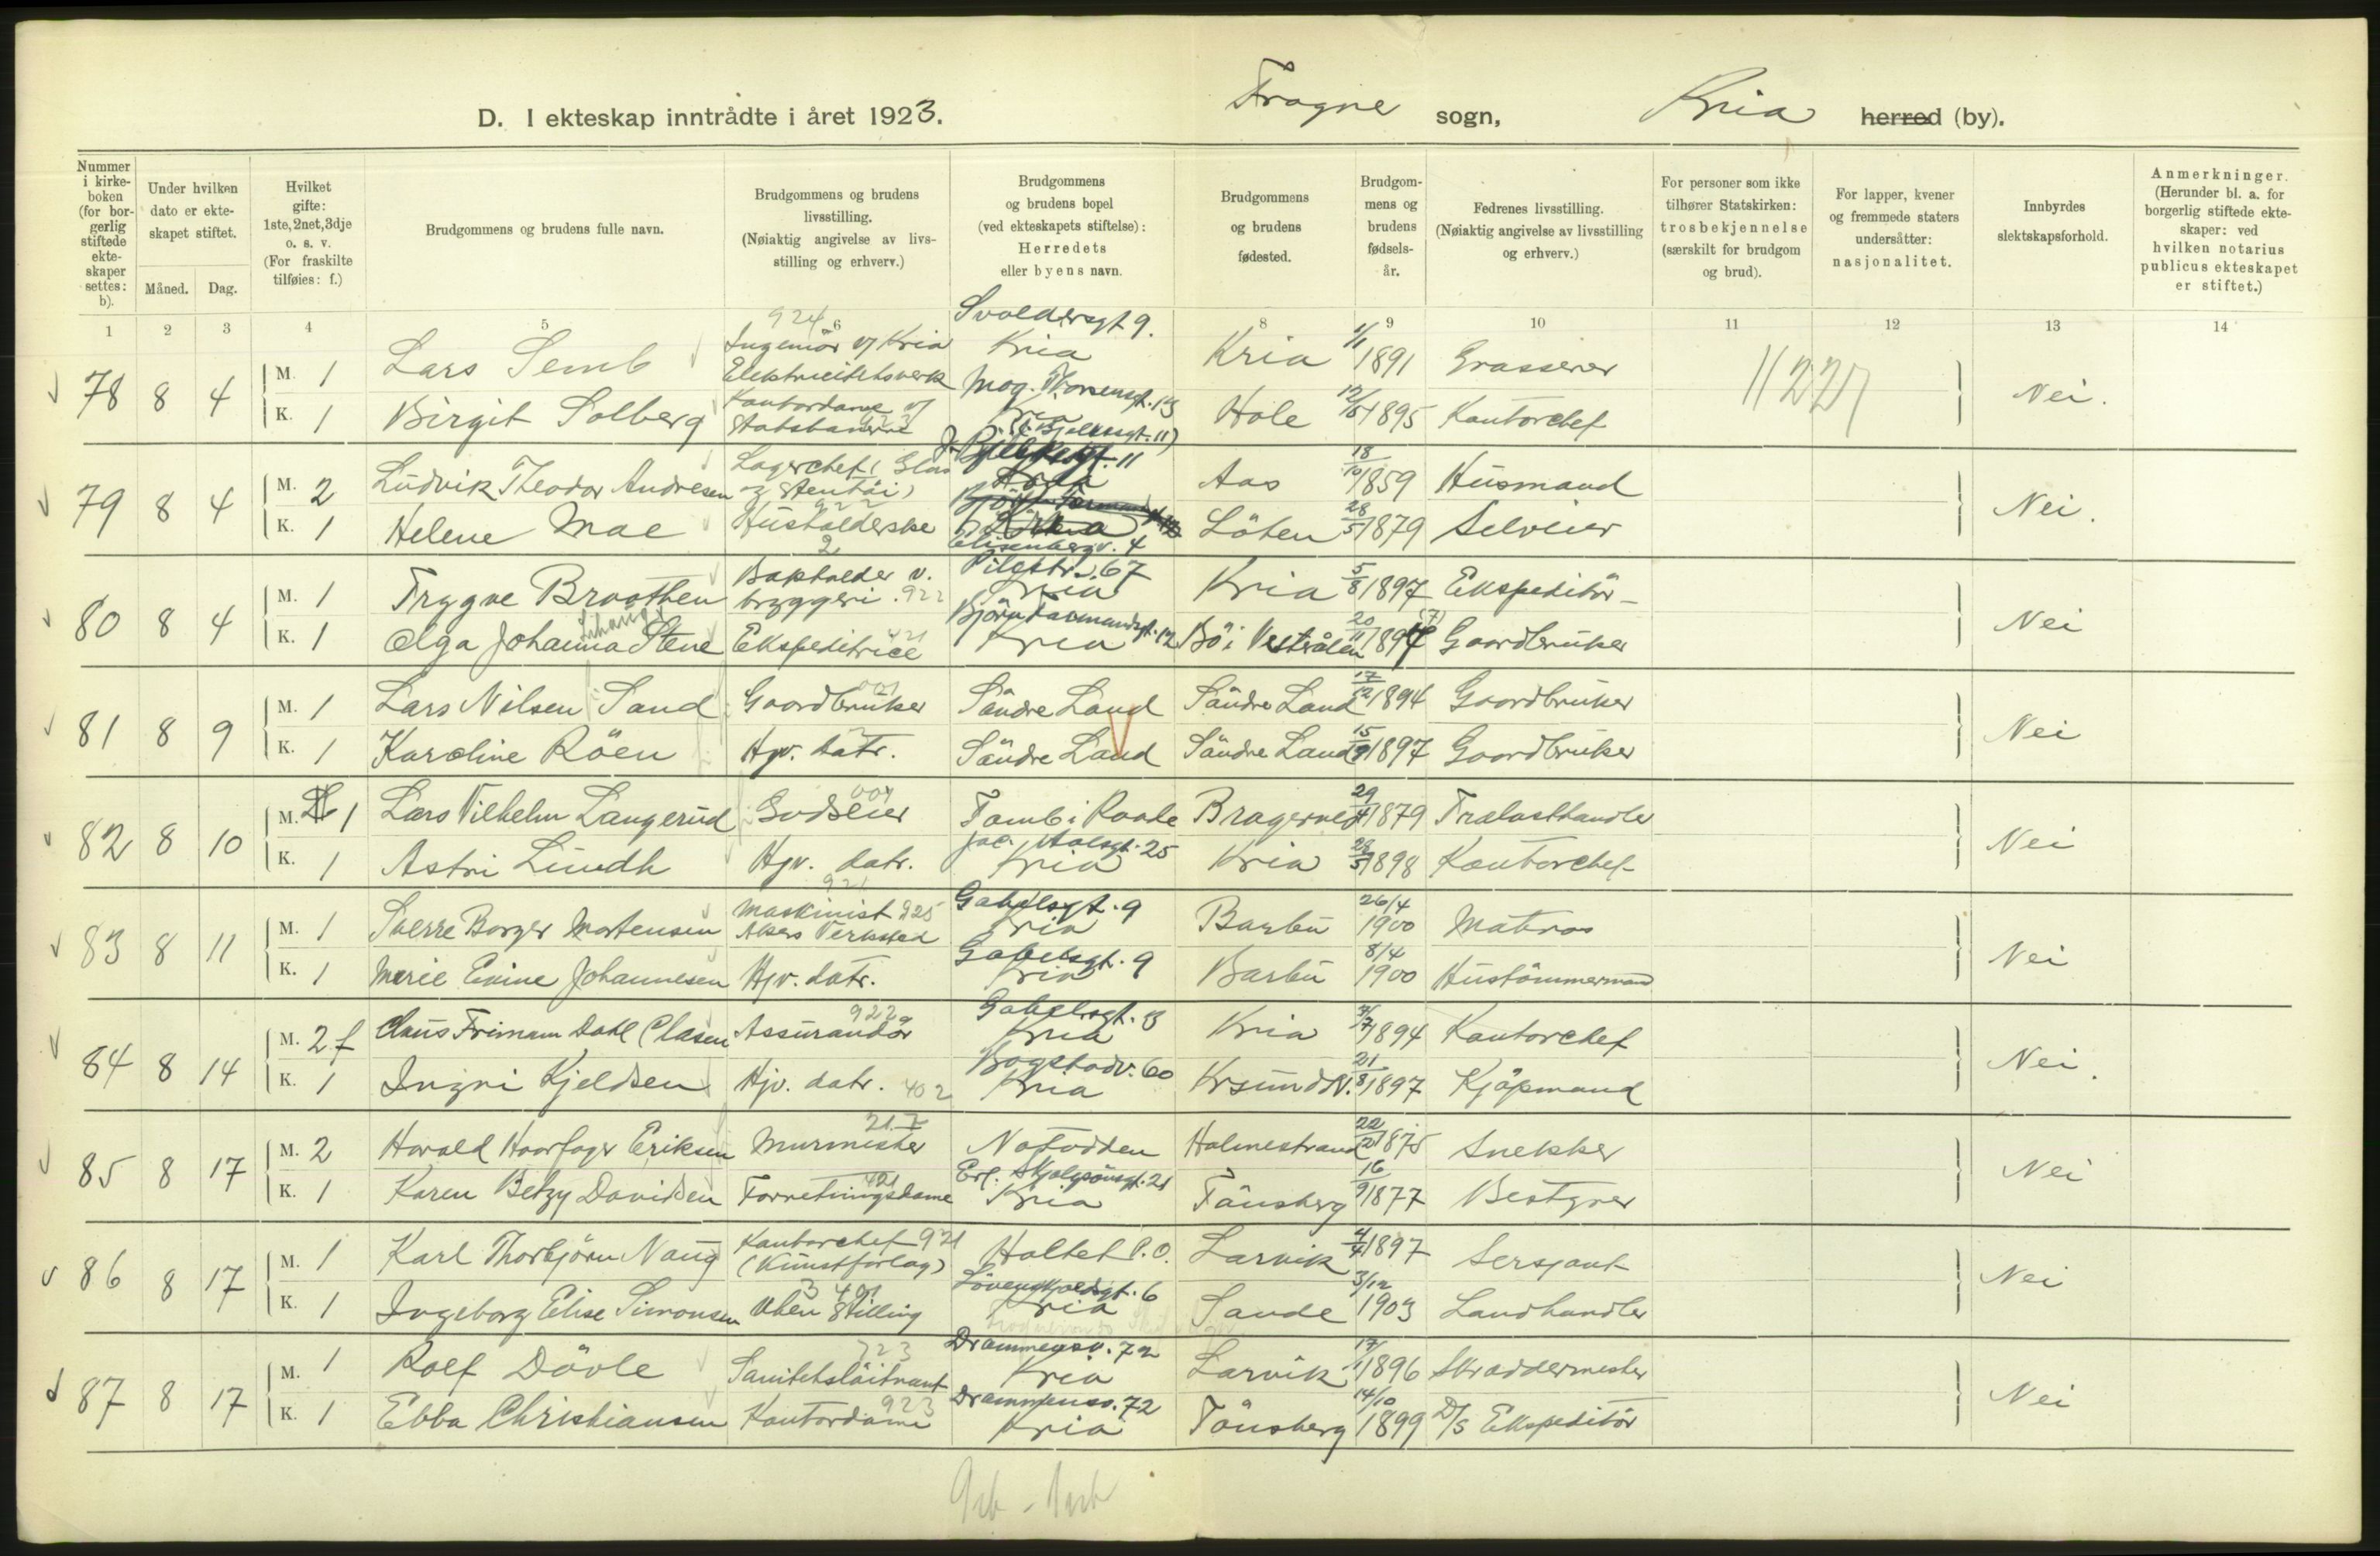 D. I ekteskap inntrådte i året 1923. Frogner sogn, Kria herred (by).
Nummer i kirkeboken (for borgerlig stiftede ekteskaper settes: b).
Under hvilken dato er ekteskapet stiftet.
Måned. Dag.
Hvilket gifte: 1ste, 2net, 3dje o. s. v. (For fraskilte tilføies: f.)
Brudgommens og brudens fulle navn.
Brudgommens og brudens livsstilling. (Nøiaktig angivelse av livsstilling og erhverv.)
Brudgommens og brudens bopel (ved ekteskapets stiftelse): Herredets eller byens navn.
Brudgommens og brudens fødested.
Brudgommens og brudens fødselsår.
Fedrenes livsstilling. (Nøiaktig angivelse av livsstilling og erhverv.)
For personer som ikke tilhører Statskirken: trosbekjennelse (særskilt for brudgom og brud).
For lapper, kvener og fremmede staters undersåtter: nasjonalitet.
Innbyrdes slektskapsforhold.
Anmerkninger. (Herunder bl. a. for borgerlig stiftede ekteskaper: ved hvilken notarius publicus ekteskapet er stiftet.)
1 2 3 4 5 6 8 9 10 11 12 13 14
78 8 4 M. 1 Lars Semb 924 Ingeniör v/ Kria Elektricitetsverk Svoldersgt 9. Kria Kria 1/1 1891 Grosserer 11227 Nei.
K. 1 Birgit Solberg Kontordame v/ Statsbanerne 923 Mog. Thorsensgt. 13 Kria Hole 12/ 1895 Kontorchef
79 8 4 M. 2 Ludvik Theodor Andresen Lagerchef (Glas & Stentöi) 922 11 Kria Aas 18/10 1859 Husmand Nei.
K. 1 Helene Moe Husholderske 2 Elisenbergv. 4 Löten 28/5 1879 Selveier
80 8 4 M. 1 Trygve Braathen Bokholder v. bryggeri. 922 Pilestr. 67 Kria Kria 5/8 1897 Ekspeditör Nei
K. 1 Olga Johanna Stene Johansd Ekspeditrice 421 Björn Farmandsgt. 12 Kria Bö i Vesterålen 20/11 1897 (7) Gaardbruker
81 8 9 M. 1 Lars Nilsen Sand Gaardbruker 001 Söndre Land Söndre Land 17/12 1894 Gaardbruker Nei
K. 1 Karoline Röen Hjv. datr. Söndre Land Söndre Land 15/9 1897 Gaardbruker
82 8 10 M. 1 Lars Vilhelm Langerud Godseier 004 Tomb i Raade Bragernes 29/4 1879 Trælasthandler Nei
K. 1 Astri Lundh Hjv. datr. 921 Jac. Aalsgt. 25 Kria Kria 28/5 1898 Kontorchef
83 8 11 M. 1 Sverre Borger Mortensen Maskinist 925 Akers Verksted Gabelsgt. 9 Kria Barbu 26/4 1900 Matros Nei
K. 1 Marie Evine Johannesen Hjv. datr. Gabelsgt. 9 Kria Barbu 8/4 1900 Hustömmermand
84 8 14 M. 2 f Claus Frimann Dahl Clasen Assurandör 922 Gabelsgt. 13 Kria Kria 1894 Kontorchef Nei.
K. 1 Ingri Kjeldsen Hjv. datr. 402 Bogstadv. 60 Kria Krsund N. 21/8 1897 Kjöpmand
85 8 17 M. 2 Harald Haarfager Eriksen Murmester 217 Notodden Holmestrand 22/2 1875 Snekker Nei
K. 1 Karen Betzy Davidsen Forretningsdame 421 Erl. Skjalgsönsgt. 21 Kria Tönsberg 16/9 1877 Bestyrer
86 8 17 M. 1 Karl Thorbjörn Naug Kontorchef 921 (Kunstforlag) Holtet P.O. Larvik 4/4 1897 Sersjant Nei
K. 1 Ingeborg Elise Simonsen Uten Stilling 3 401 Lövenskjoldsgt. 6 Kria Sande 3/12 1903 Landhandler
87 8 17 M. 1 Rolf Dövle Sanitetslöitnant 723 Drammensv. 72 Kria Larvik 17/1 1896 Skræddermester Nei
K. 1 Ebba Christiansen Kontordame 923 Drammensv. 72 Kria Tönsberg 14/10 1899 D/S Ekspeditör